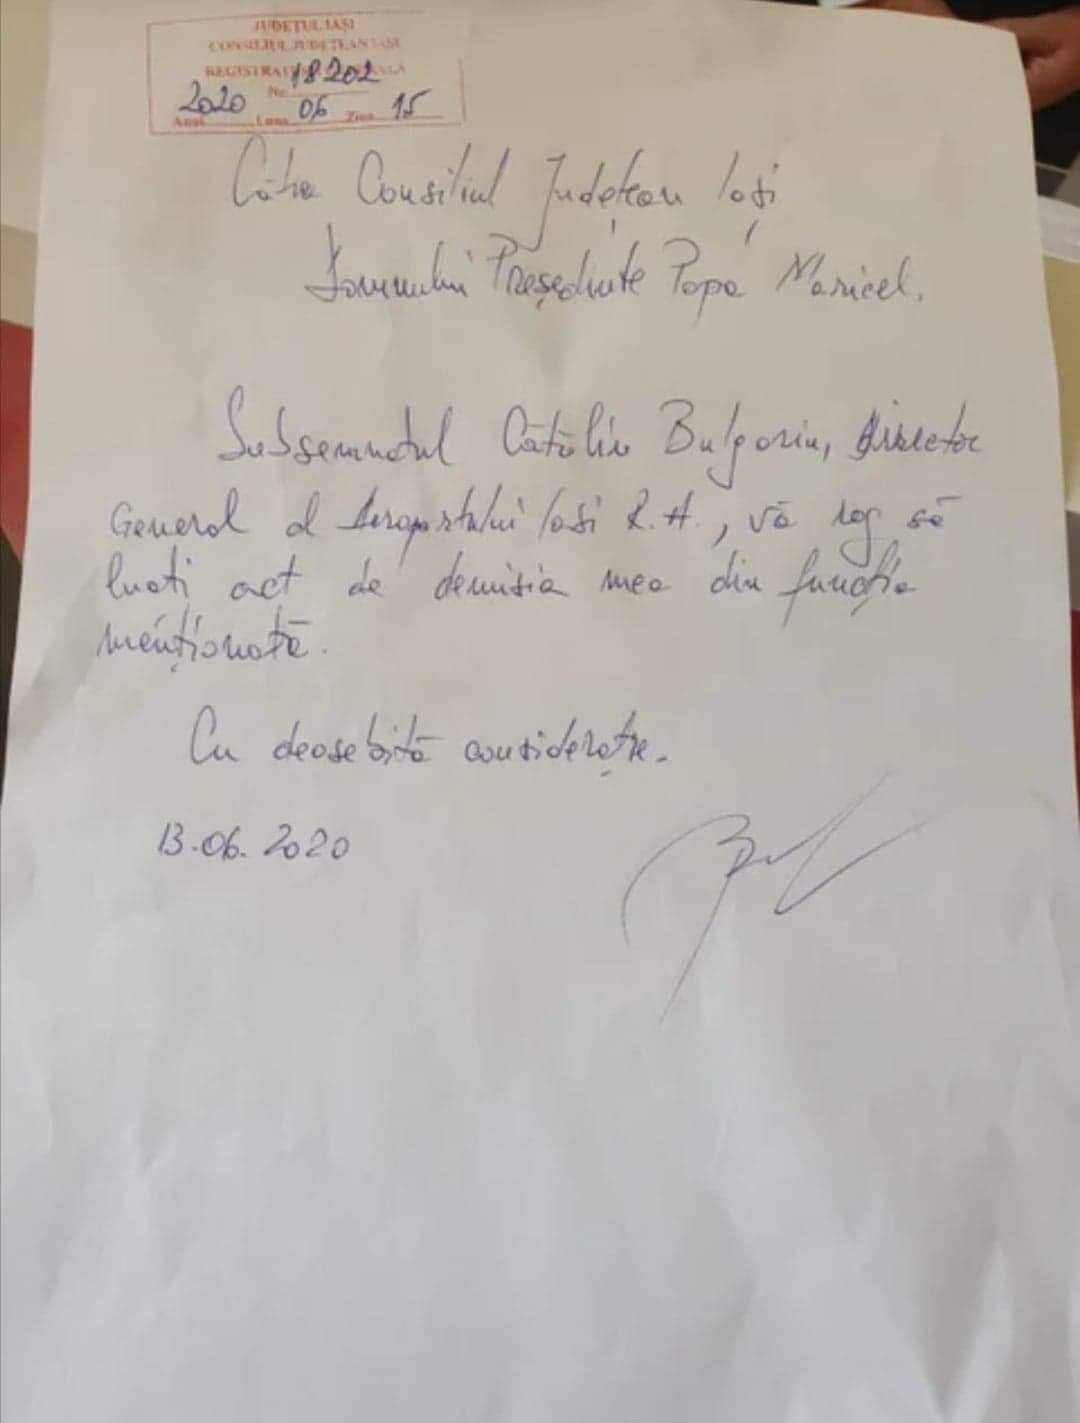 JUDEȚUL IAȘI
CONSILIUL JUDEȚEAN IAȘI
REGISTRATURA GENERALĂ
Nr. 18202
Anul 2020 Luna 06 Ziua 15
Către Consiliul Județean Iași
Domnului Președinte Popa Maricel.
Subsemnatul Cătălin Bulgariu, Director
General al Aeroportului Iași R.A., vă rog să
luați act de demisia mea din funcția
menționată.
Cu deosebită considerație.
13.06.2020